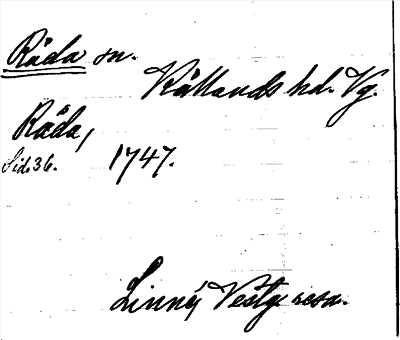 Råda sn.
Kållands hd. Vg.
Råda,
Sid. 36. 1747.
Linnéj Vestg. resa.